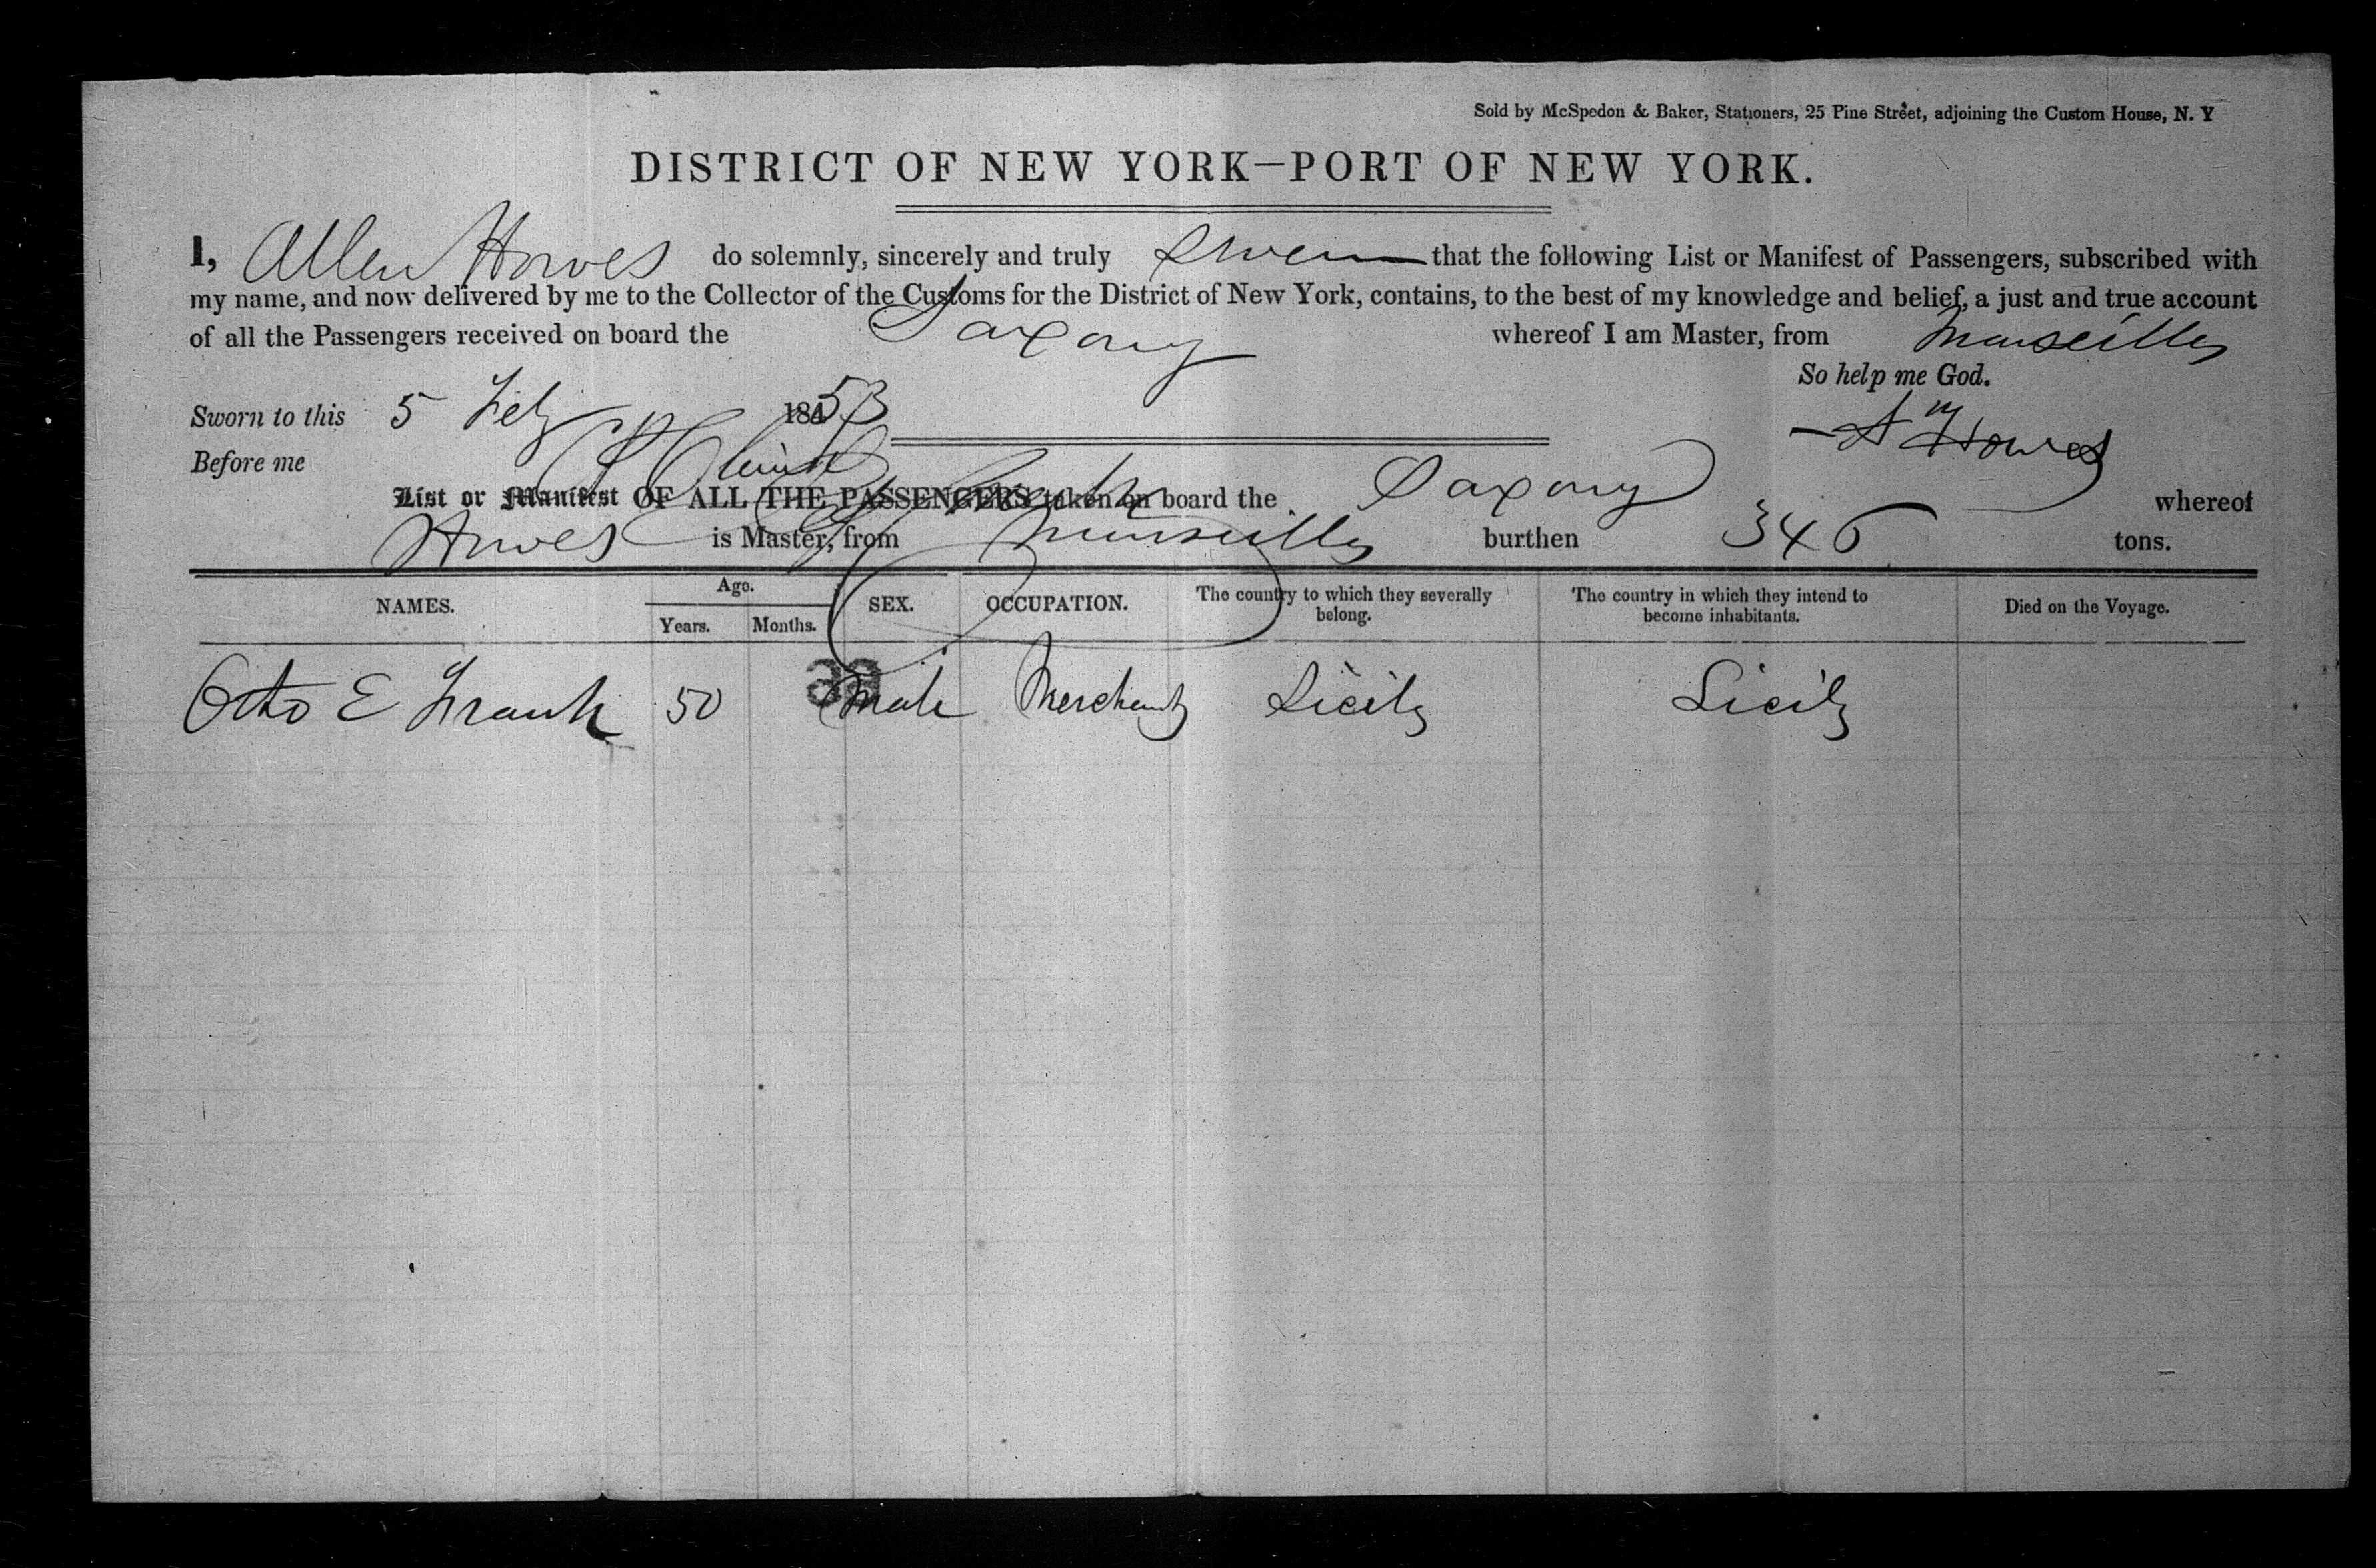 Sold by McSpedon & Baker, Stationers, 25 Pine Street, adjoining the Custom House, N. Y
DISTRICT OF NEW YORK—PORT OF NEW YORK.
I, Allen Howes do solemnly, sincerely and truly swear that the following List or Manifest of Passengers, subscribed with
my name, and now delivered by me to the Collector of the Customs for the District of New York, contains, to the best of my knowledge and belief, a just and true account
of all the Passengers received on board the Saxony whereof I am Master, from Marseilles
So help me God.
Sworn to this 5 Feby 1853
Howes
Before me
List or Manifest OF ALL THE PASSENGERS taken on board the Saxony whereof
Howes is Master, from Marseilles burthen 346 tons.
NAMES. Age. Years. Months. SEX. OCCUPATION. The country to which they severally belong. The country in which they intend to become inhabitants. Died on the Voyage.
Otto E Frank 50 Male Merchant Sicily Sicily